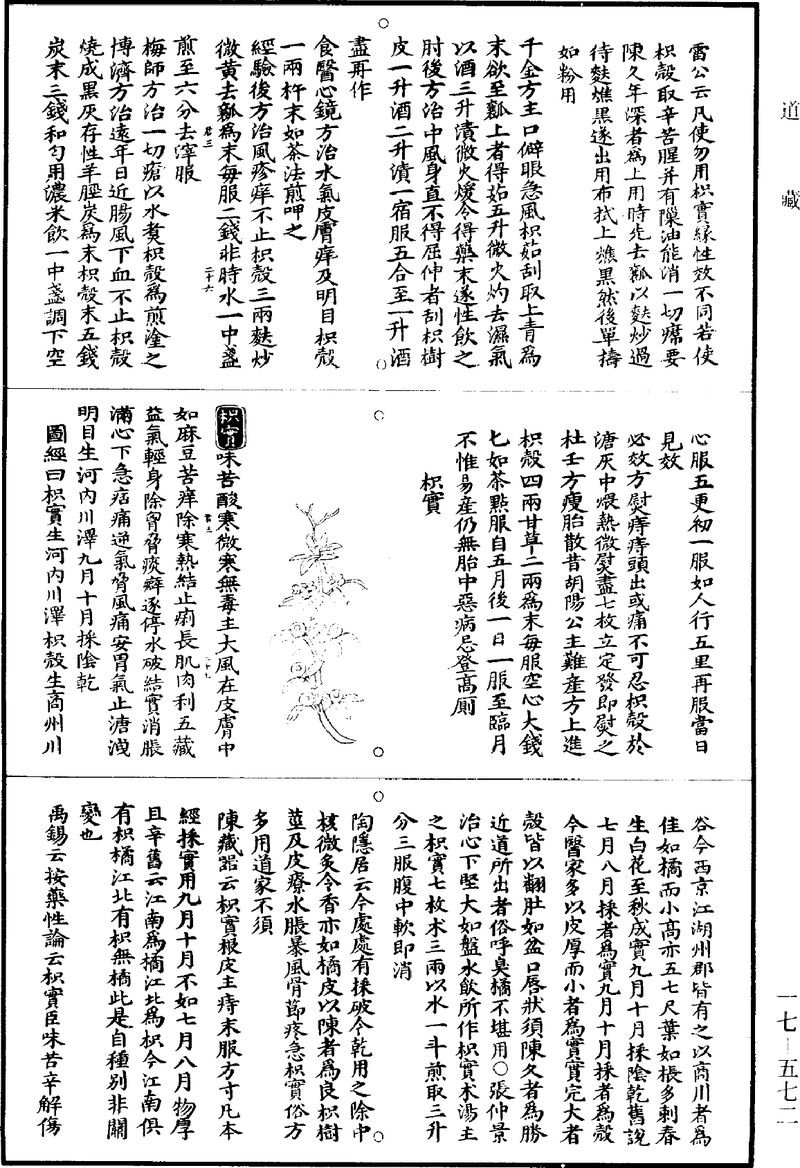 道藏
雷公云凡使勿用枳實緣性效不同若使
枳殼取辛苦腥并有隟油能消一切㿃要
陳久年深者爲上用時先去瓤以麩炒過
待麩燋黑遂出用布拭上燋黑然後單擣
如粉用
千金方主口僻眼急風枳茹刮取上青爲
末欲至瓤上者得茹五升微火灼去濕氣
以酒三升漬微火煖令得藥末遂性飲之
肘後方治中風身直不得屈伸者刮枳樹
皮一升酒二升漬一宿服五合至一升酒
盡再作
食醫心鏡方治水氣皮膚痒及明目枳殼
一兩杵末如茶法煎呷之
經驗後方治風疹痒不止枳殼三兩麩炒
微黄去瓤爲末每服二錢非時水一中盞
煎至六分去滓服
梅師方治一切瘡以水煑枳殼爲煎塗之
博濟方治遠年日近腸風下血不止枳殼
燒成黑灰存性羊脛炭爲末枳殼末五錢
炭末三錢和匀用濃米飲一中盞調下空
心服五更初一服如人行五里再服當日
見效
必效方熨痔痔頭出或痛不可忍枳殼於
溏灰中煨熱微熨盡七枚立定發即熨之
杜壬方瘦胎散昔胡陽公主難産方上進
枳殼四兩甘草二兩爲末每服空心大錢
匕如茶點服自五月後一日一服至臨月
不惟易産仍無胎中惡病忌登高厠
枳實
枳實味苦酸寒微寒無毒主大風在皮膚中
如麻豆苦痒除寒熱結止痢長肌肉利五藏
益氣輕身除胷脅痰癖逐停水破結實消脹
滿心下急痞痛逆氣脅風痛安胃氣止溏洩
明目生河内川澤九月十月採陰乾
圖經曰枳實生河内川澤枳殼生商州川
谷今西京江湖州郡皆有之以商川者爲
佳如橘而小高亦五七尺葉如棖多刺春
生白花至秋成實九月十月採陰乾舊說
七月八月採者爲實九月十月採者爲殼
今醫家多以皮厚而小者爲實實完大者
殼皆以翻肚如盆口唇狀須陳久者爲勝
近道所出者俗呼臭橘不堪用○張仲景
治心下堅大如盤水飲所作枳實朮湯主
之枳實七枚朮三兩以水一斗煎取三升
分三服腹中軟即消
陶隱居云今處處有採破令乾用之除中
核微炙令香亦如橘皮以陳者爲良枳樹
莖及皮療水脹暴風骨節疼急枳實俗方
多用道家不須
陳藏器云枳實根皮主痔末服方寸凡本
經採實用九月十月不如七月八月物厚
且辛舊云江南爲橘江北爲枳今江南俱
有枳橘江北有枳無橘此是自種别非關
變也
禹錫云按藥性論云枳實臣味苦辛解傷
一七—五七二